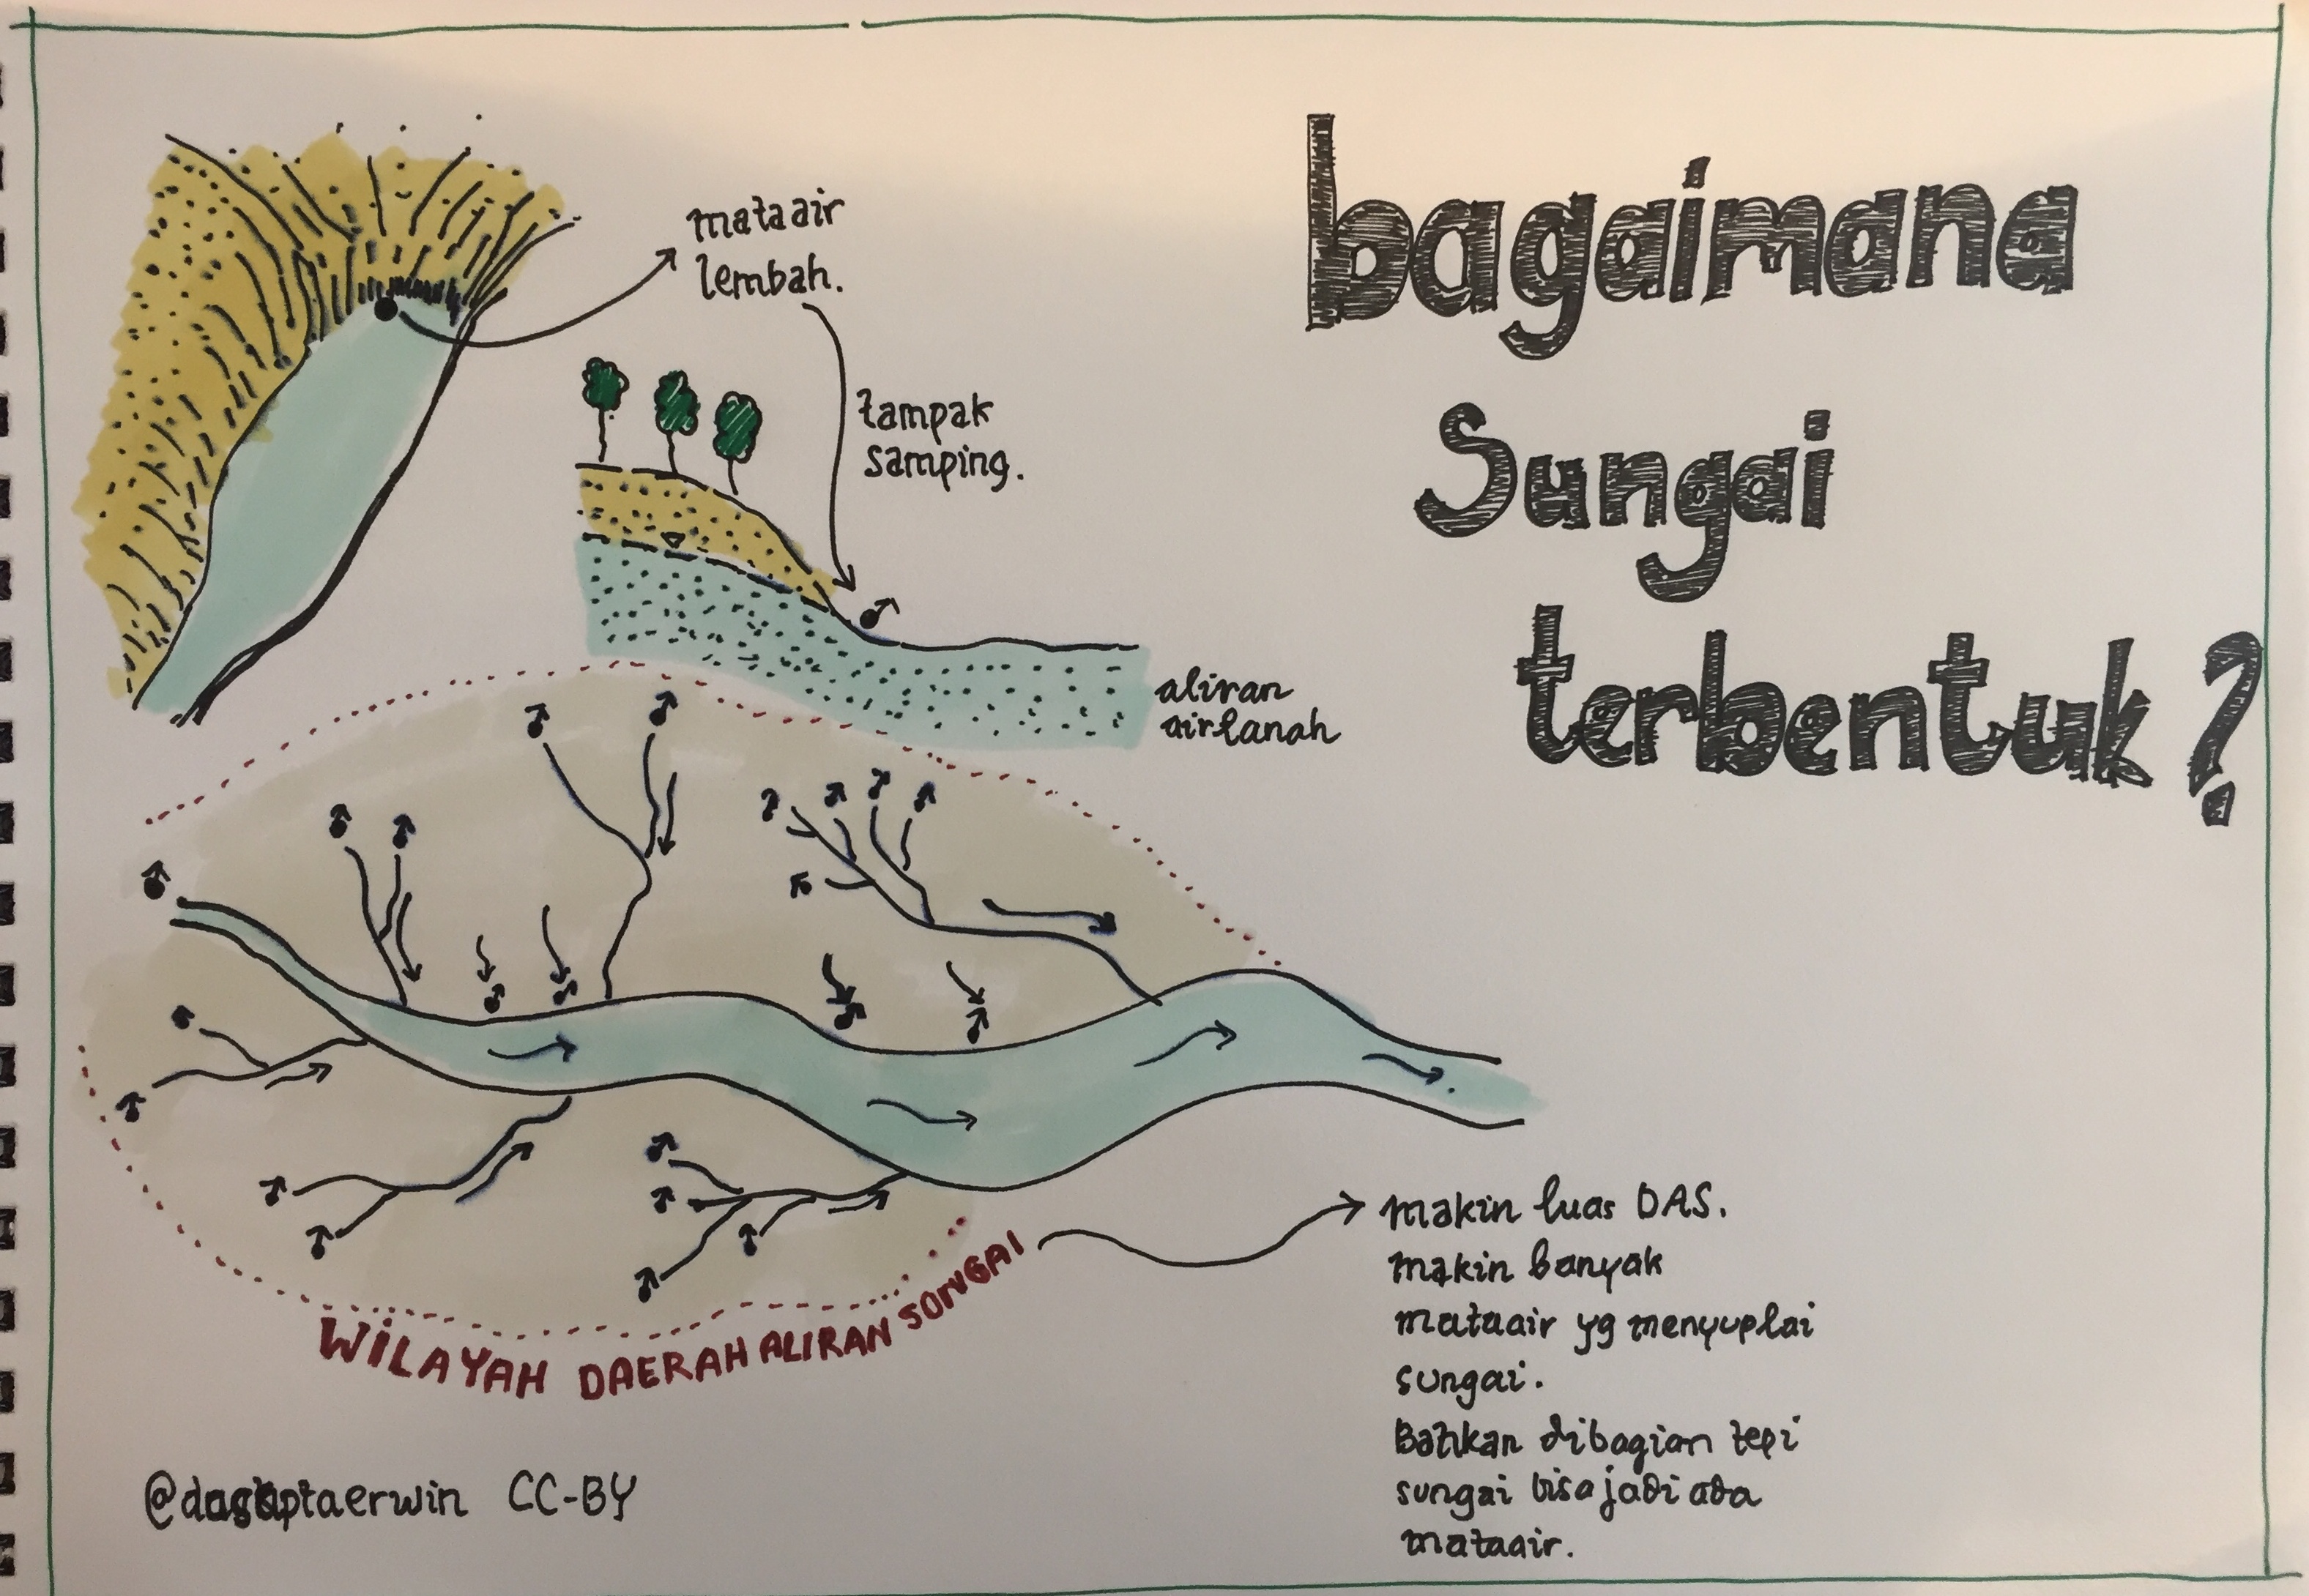 bagaimana
Sungai
terbentuk?
mataair
lembah.
tampak
samping.
aliran
airtanah
WILAYAH DAERAH ALIRAN SONGAI
makin luas DAS.
makin banyak
mataair yg menyuplai
sungai.
Bahkan dibagian tepi
sungai bisa jadi ada
mataair.
@dasaptaerwin CC-BY